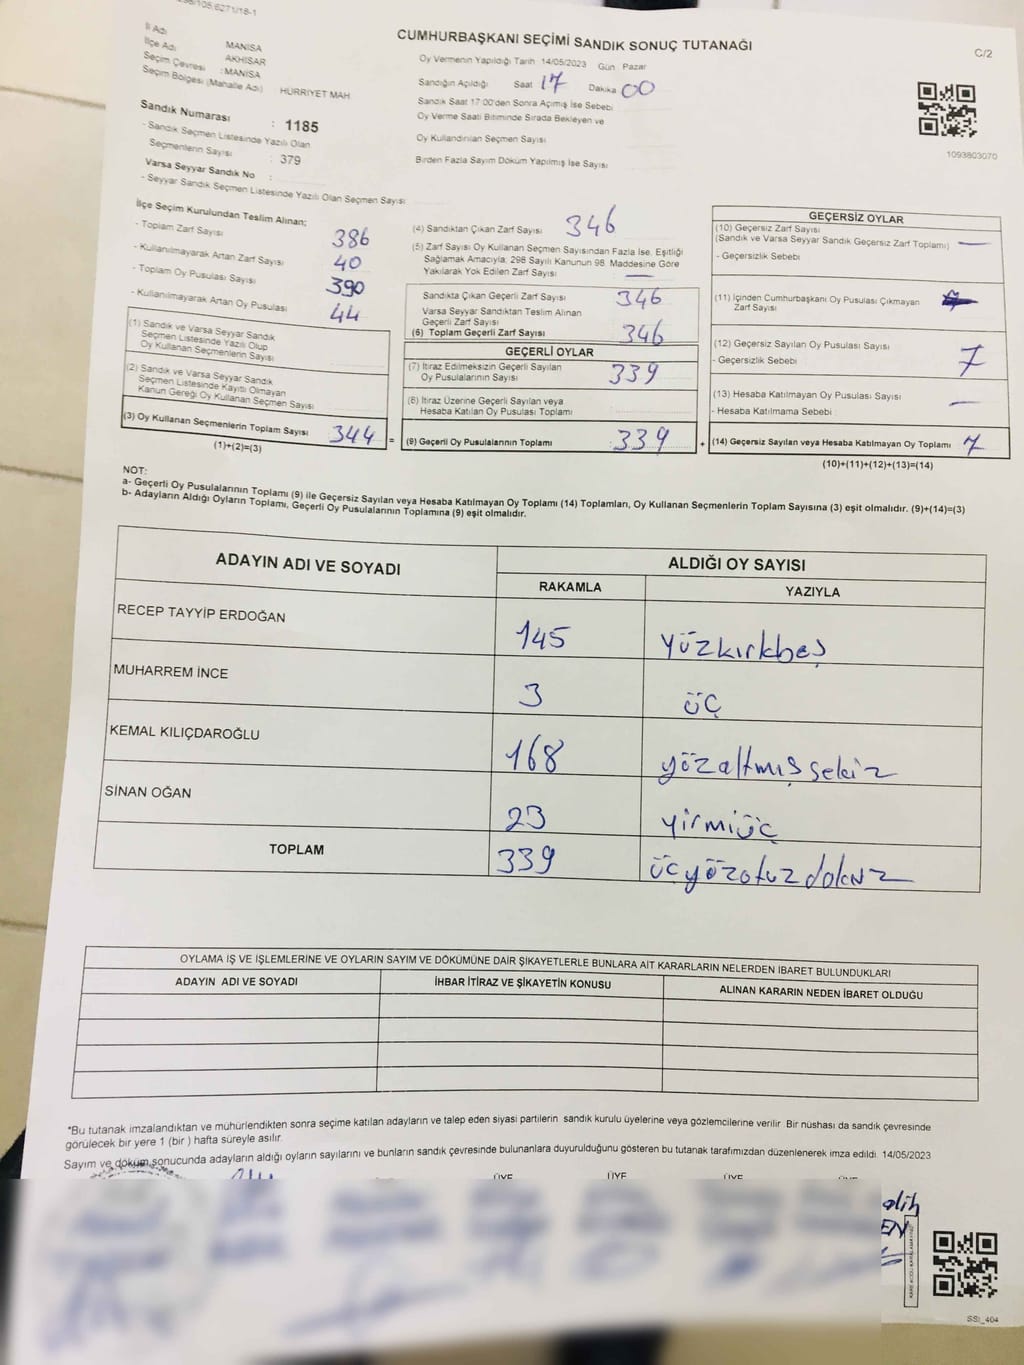 CUMHURBAŞKANI SEÇİMİ SANDIK SONUÇ TUTANAĞI
C/2
İl Adı
İlçe Adı : MANİSA
Seçim Çevresi : AKHİSAR
Seçim Bölgesi (Mahalle Adı) : MANİSA
HÜRRİYET MAH
Sandık Numarası : 1185
- Sandık Seçmen Listesinde Yazılı Olan
Seçmenlerin Sayısı : 379
Varsa Seyyar Sandık No :
- Seyyar Sandık Seçmen Listesinde Yazılı Olan Seçmen Sayısı
Oy Vermenin Yapıldığı Tarih 14/05/2023 Gün Pazar
Sandığın Açıldığı Saat 17 Dakika 00
Sandık Saat 17:00'den Sonra Açılmış İse Sebebi
Oy Verme Saati Bitiminde Sırada Bekleyen ve
Oy Kullandırılan Seçmen Sayısı
Birden Fazla Sayım Döküm Yapılmış İse Sayısı
1093803070
İlçe Seçim Kurulundan Teslim Alınan;
- Toplam Zarf Sayısı 386
- Kullanılmayarak Artan Zarf Sayısı 40
- Toplam Oy Pusulası Sayısı 390
- Kullanılmayarak Artan Oy Pusulası 44
(1) Sandık ve Varsa Seyyar Sandık
Seçmen Listesinde Yazılı Olup
Oy Kullanan Seçmenlerin Sayısı
(2) Sandık ve Varsa Seyyar Sandık
Seçmen Listesinde Kayıtlı Olmayan
Kanun Gereği Oy Kullanan Seçmen Sayısı
(3) Oy Kullanan Seçmenlerin Toplam Sayısı 344 =
(1)+(2)=(3)
(4) Sandıktan Çıkan Zarf Sayısı 346
(5) Zarf Sayısı Oy Kullanan Seçmen Sayısından Fazla İse, Eşitliği
Sağlamak Amacıyla; 298 Sayılı Kanunun 98. Maddesine Göre
Yakılarak Yok Edilen Zarf Sayısı —
Sandıkta Çıkan Geçerli Zarf Sayısı 346
Varsa Seyyar Sandıktan Teslim Alınan
Geçerli Zarf Sayısı
(6) Toplam Geçerli Zarf Sayısı 346
GEÇERLİ OYLAR
(7) İtiraz Edilmeksizin Geçerli Sayılan
Oy Pusulalarının Sayısı 339
(8) İtiraz Üzerine Geçerli Sayılan veya
Hesaba Katılan Oy Pusulası Toplamı
(9) Geçerli Oy Pusulalarının Toplamı : 339 +
GEÇERSİZ OYLAR
(10) Geçersiz Zarf Sayısı
(Sandık ve Varsa Seyyar Sandık Geçersiz Zarf Toplamı) —
- Geçersizlik Sebebi
(11) İçinden Cumhurbaşkanı Oy Pusulası Çıkmayan
Zarf Sayısı
(12) Geçersiz Sayılan Oy Pusulası Sayısı
- Geçersizlik Sebebi 7
(13) Hesaba Katılmayan Oy Pusulası Sayısı
- Hesaba Katılmama Sebebi : —
(14) Geçersiz Sayılan veya Hesaba Katılmayan Oy Toplamı 7
(10)+(11)+(12)+(13)=(14)
NOT:
a- Geçerli Oy Pusulalarının Toplamı (9) ile Geçersiz Sayılan veya Hesaba Katılmayan Oy Toplamı (14) Toplamları, Oy Kullanan Seçmenlerin Toplam Sayısına (3) eşit olmalıdır. (9)+(14)=(3)
b- Adayların Aldığı Oyların Toplamı, Geçerli Oy Pusulalarının Toplamına (9) eşit olmalıdır.
ADAYIN ADI VE SOYADI ALDIĞI OY SAYISI
RAKAMLA YAZIYLA
RECEP TAYYİP ERDOĞAN 145 yüzkırkbeş
MUHARREM İNCE 3 üç
KEMAL KILIÇDAROĞLU 168 yüzaltmışsekiz
SİNAN OĞAN 23 yirmiüç
TOPLAM 339 üçyüzotuzdokuz
OYLAMA İŞ VE İŞLEMLERİNE VE OYLARIN SAYIM VE DÖKÜMÜNE DAİR ŞİKAYETLERLE BUNLARA AİT KARARLARIN NELERDEN İBARET BULUNDUKLARI
ADAYIN ADI VE SOYADI İHBAR İTİRAZ VE ŞİKAYETİN KONUSU ALINAN KARARIN NEDEN İBARET OLDUĞU
*Bu tutanak imzalandıktan ve mühürlendikten sonra seçime katılan adayların ve talep eden siyasi partilerin sandık kurulu üyelerine veya gözlemcilerine verilir. Bir nüshası da sandık çevresinde
görülecek bir yere 1 (bir) hafta süreyle asılır.
Sayım ve döküm sonucunda adayların aldığı oyların sayılarını ve bunların sandık çevresinde bulunanlara duyurulduğunu gösteren bu tutanak tarafımızdan düzenlenerek imza edildi. 14/05/2023
ÜYE ÜYE ÜYE
SSI_404